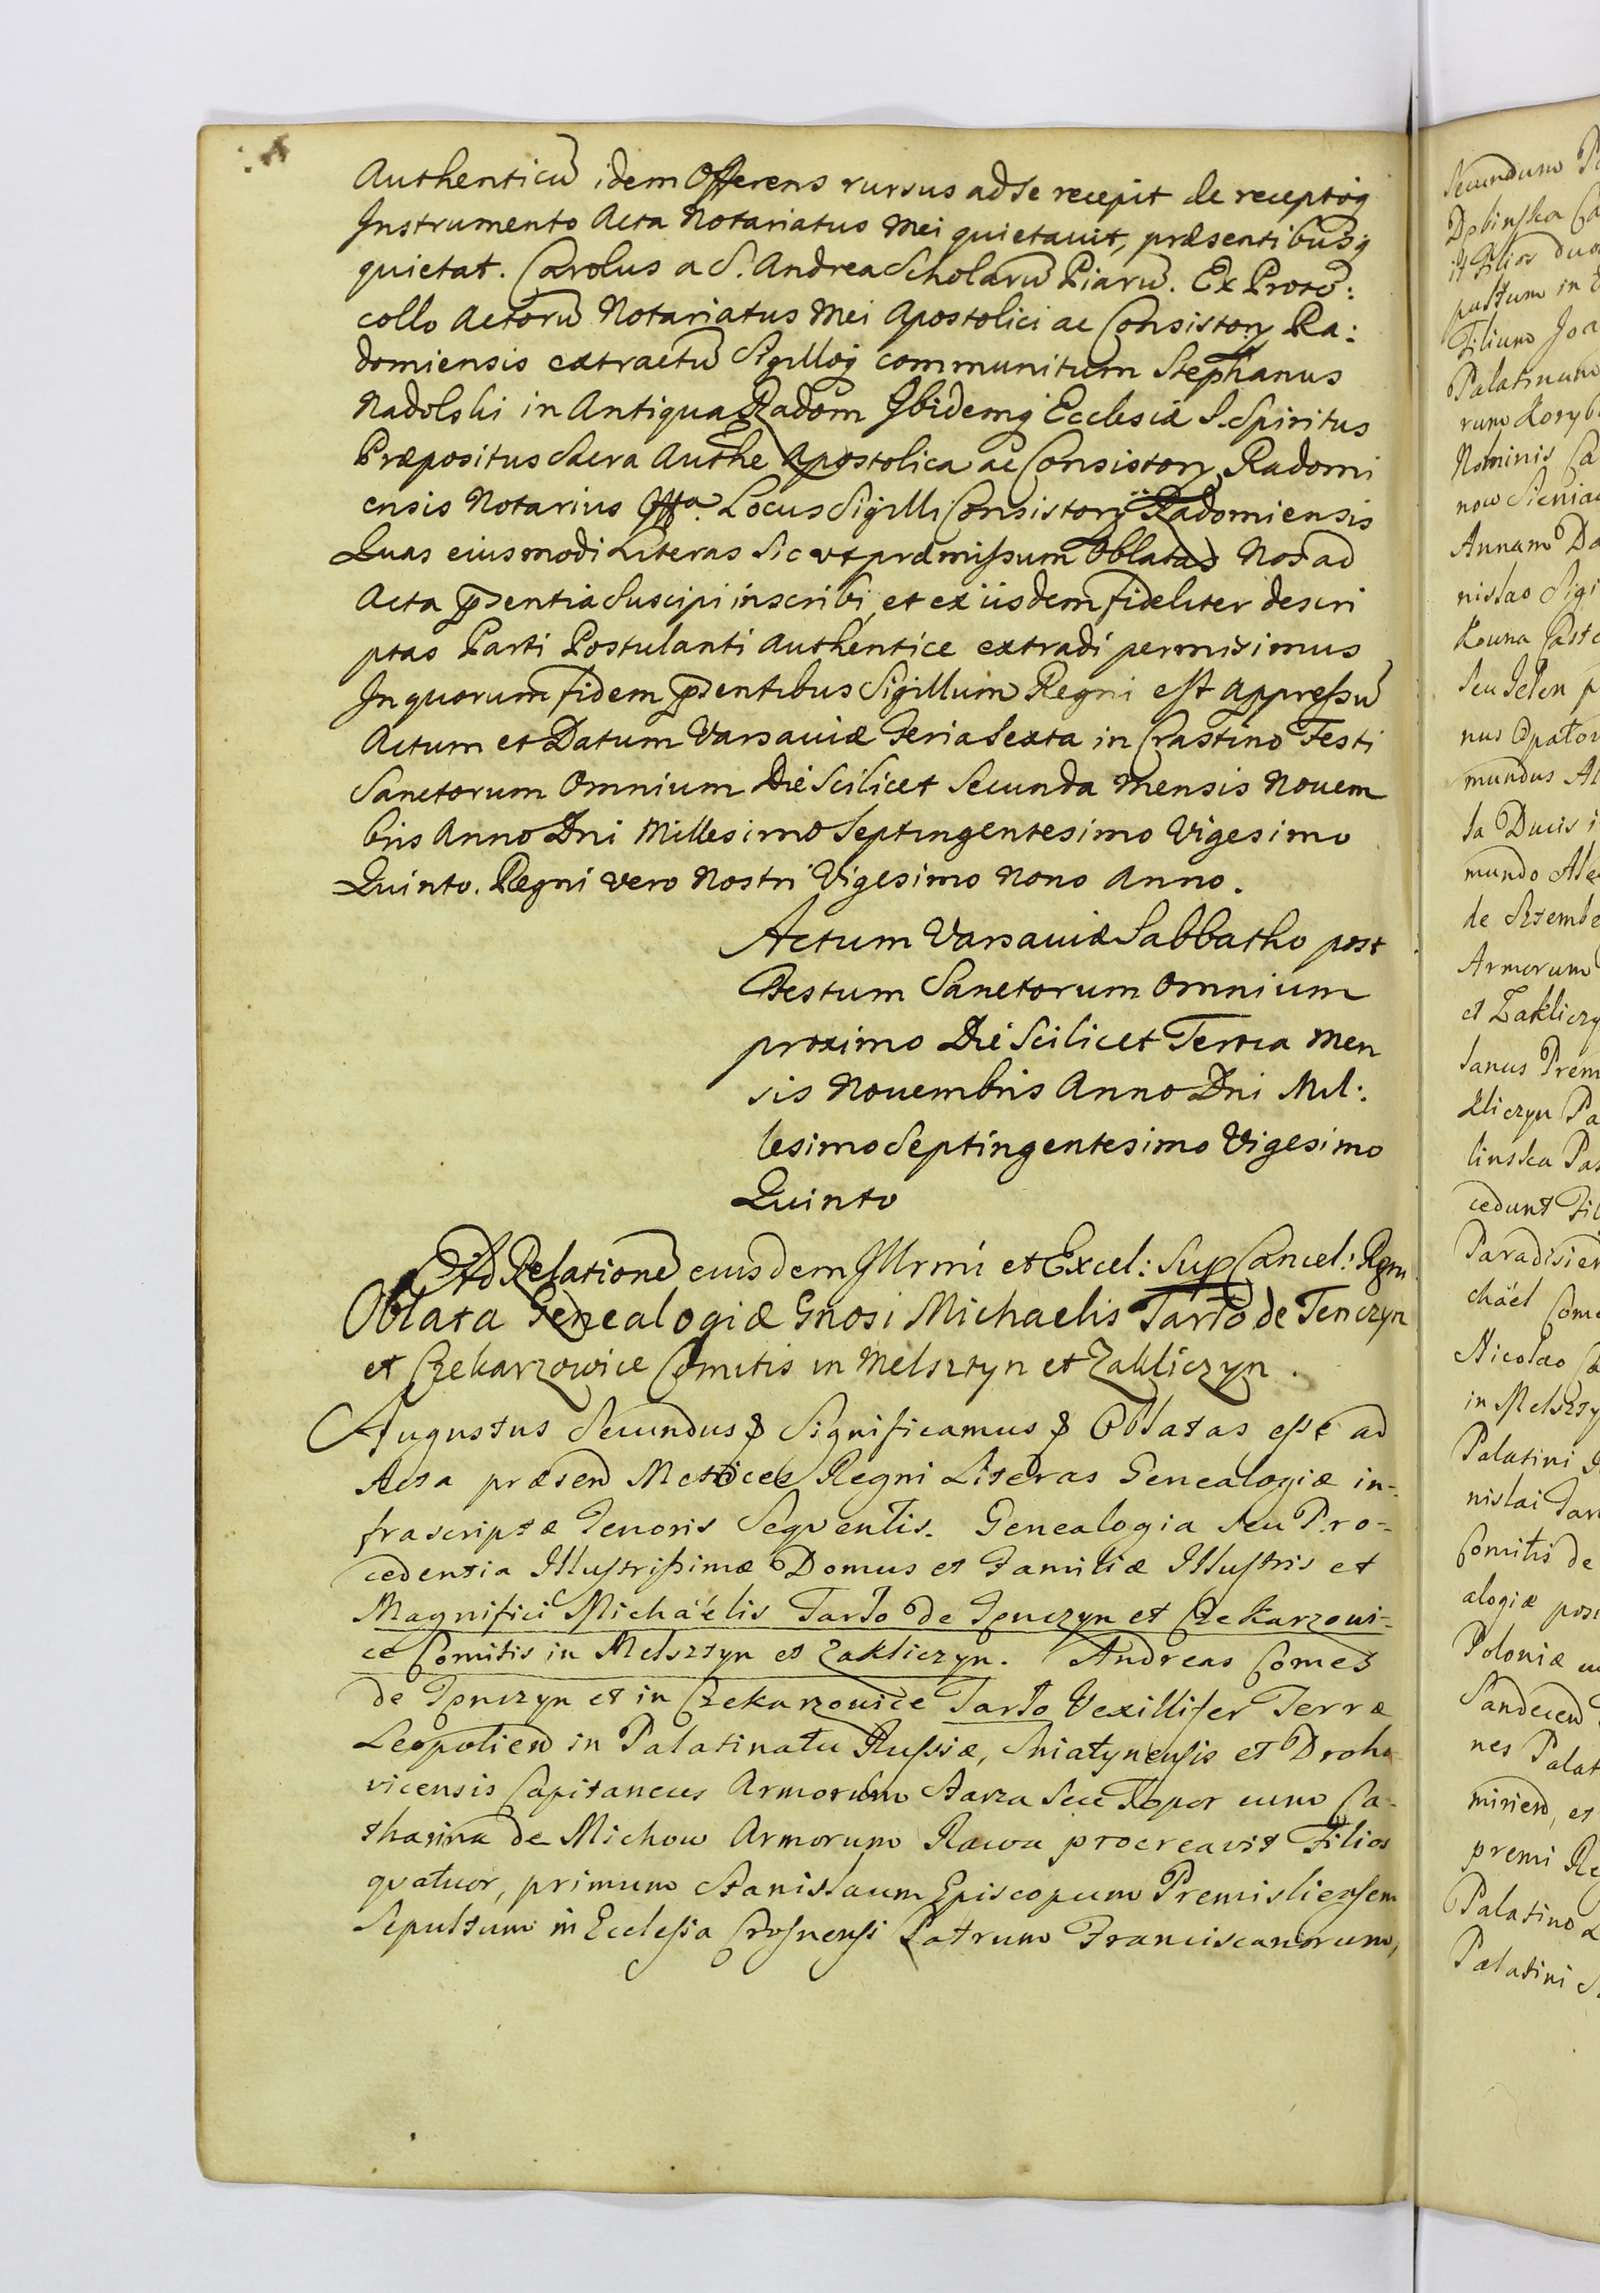 Authenticū idem Offerens rursus ad se recepit de receptoq
Instrumento Acta Notariatus Mei quietauit, præsentibusq
quietat. Carolus a S. Andrea Scholarū Piarū. Ex Proto:
collo Actorū Notariatus Mei Apostolici ac Consistory Ra:
domiensis extractū Sigilloq communitum Stephanus
Nadolski in Antiqua Radom Ibidemq Ecclesiæ S. Spiritus
Præpositus Sacra Authe Apostolica ac Consistory Radomi
ensis Notarius Locus Sigilli Consistorÿ Radomiensis
Quas eiusmodi Literas Sic ut præmissum Oblatas Nos ad
Acta pñsentia Suscipi inscribi, et ex iisdem fideliter descri
ptas Parti Postulanti Authentice extradi permisimus
In quorum fidem pñsentibus Sigillum Regni est appressū
Actum et Datum Varsauiæ Feria Sexta in Crastino Festi
Sanctorum Omnium Die Scilicet Secunda Mensis Nouem
bris Anno Dni Millesimo Septingentesimo Vigesimo
Quinto. Regni vero Nostri Vigesimo Nono Anno.
Actum Varsauiæ Sabbatho post
Festum Sanctorum Omnium
proximo Die Scilicet Tertia Men
sis Nouembris Anno Dni Mil:
lesimo Septingentesimo Vigesimo
Quinto
Ad Relationē eiusdem Illrmi et Excel: Sup Cancel: Regni
Oblata Genealogiæ Gnosi Michaelis Tarło de Tenczyn
et Czekarzowice Comitis in Melsztyn et Zakliczyn.
Augustus Secundus & Significamus & Oblatas esse ad
Acta præsen Metrices Regni Literas Genealogiæ in-
frascriptæ Tenoris Seqventis. Genealogia Seu Pro-
cedentia Illustrissimæ Domus et Familiæ Illustris et
Magnifici Michaelis Tarło de Tenczyn et Czekarzoui-
ce Comitis in Melsztyn et Zakliczyn. Andreas Comes
de Tenczyn et in Czekarzouice Tarło Vexillifer Terræ
Leopolien in Palatinatu Russiæ, Sniatynensis et Droho
vicensis Capitaneus Armorum Starza Seu Topor cum Ca-
tharina de Michow Armorum Rawa procreavit Filios
qvatuor, primum Stanislaum Episcopum Premisliensem
Sepultum in Ecclesia Crosnensi Patrum Franciscanorum,
Secundum
Filium
Palatinum
Nominis
mundo
Armorum
cedunt
Nicolao
Palatini
Comitis de
alogiæ
Poloniæ
Palatino
Palatini